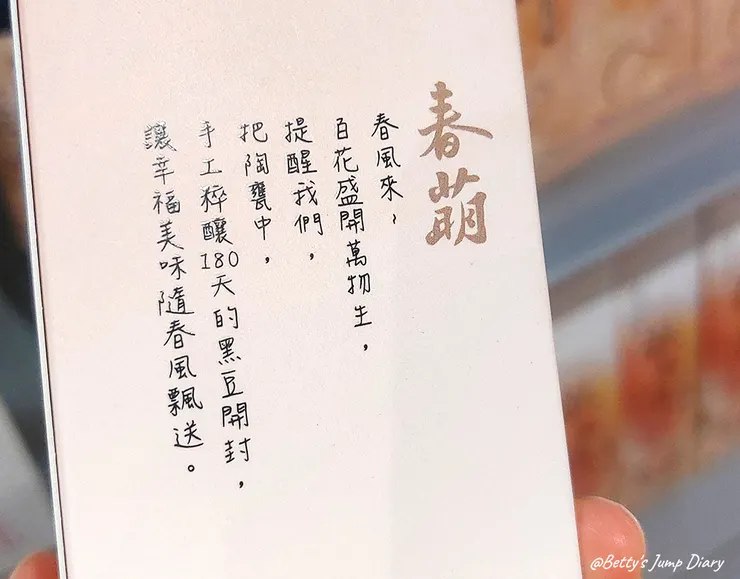 春萌
春風來,
百花盛開萬物生,
提醒我們,
把陶甕中,
手工粹釀180天的黑豆開封,
讓幸福美味隨春風飄送。
@Betty's Jump Diary